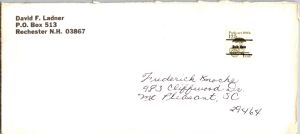 David F. Ladner
P.O. Box 513
Rochester N.H. 03867
Frederick Knocke
483 Cliffwood Dr.
Mt Pleasant, SC
29464